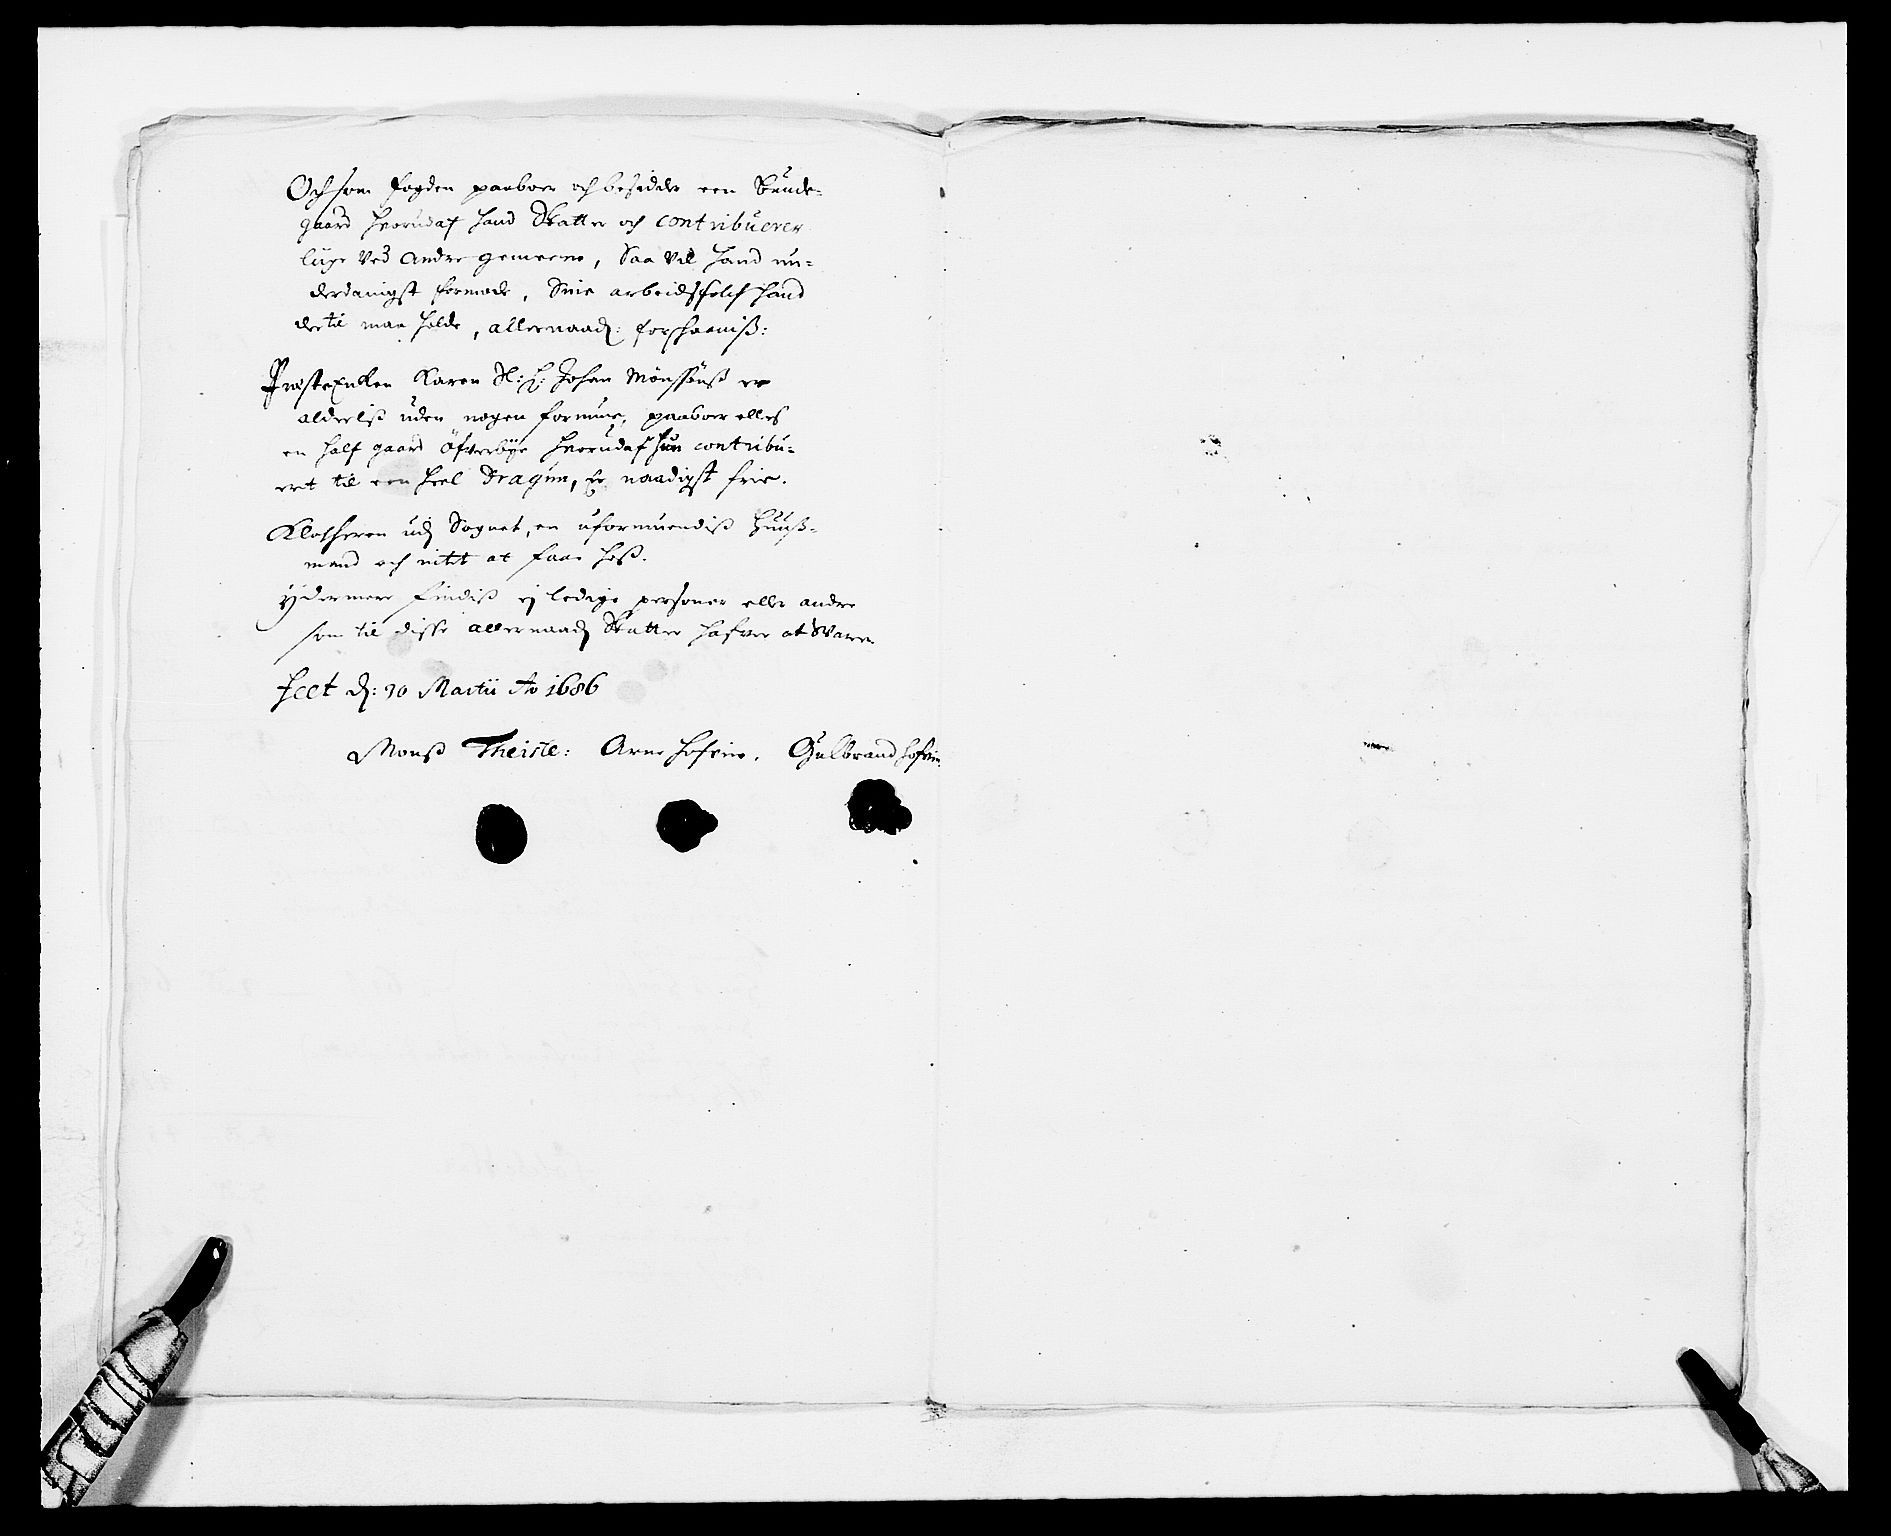 Och som fogden paaboer och besidder een Bunde-
gaard hvorudaf hand Skatter och contribuerer
liige ved andre gemeene, Saa vil hand un-
derdanigst formode, Sine arbeidsfolch hand
dertil maa holde, allernaad: forskaaniß:
Præsteencken Karen Sl: H: Johan Mönssönß er
alderlß uden nogen formue, paaboer elles
en half gaard Öfverbye hvorudaf hun contribu-
ert til een heel Dragun, Er naadigst frie.
Klocheren udj Sognet, en uformuendiß Huuß-
mand och intet at faae hoß.
Ydermere findiß ej ledige personer eller andre
som til disse allernaad Skatter hafver at Svare
Feet d: 30 Martii Ao 1686
Monß Theiste: Arne Hofvin. Gulbrand Hofvin.